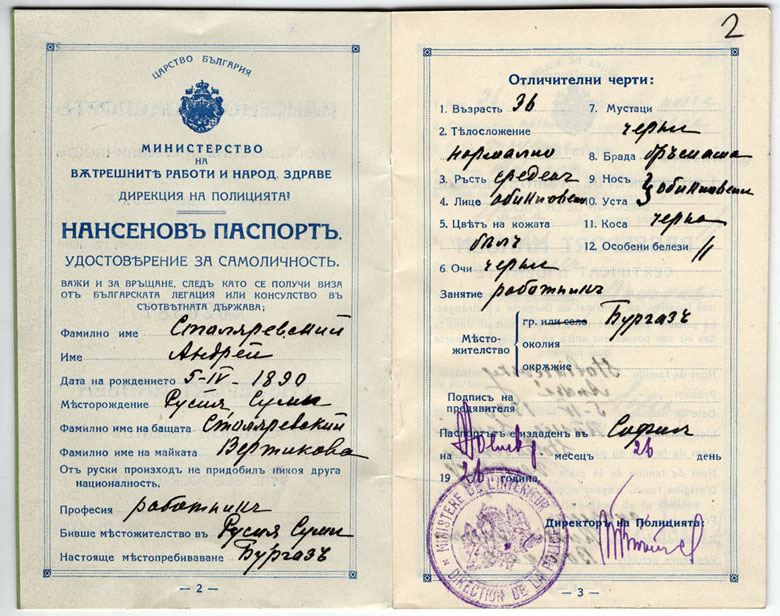 ЦАРСТВО БЪЛГАРИЯ
МИНИСТЕРСТВО
НА
ВѪТРЕШНИТѢ РАБОТИ И НАРОД. ЗДРАВЕ
ДИРЕКЦИЯ НА ПОЛИЦИЯТА!
НАНСЕНОВЪ ПАСПОРТЪ.
УДОСТОВѢРЕНИЕ ЗА САМОЛИЧНОСТЬ.
ВАЖИ И ЗА ВРЪЩАНЕ, СЛЕДЪ КАТО СЕ ПОЛУЧИ ВИЗА
ОТЪ БЪЛГАРСКАТА ЛЕГАЦИЯ ИЛИ КОНСУЛСТВО ВЪ
СЪОТВѢТНАТА ДЪРЖАВА;
Фамилно име Сталяревский
Име Андрей
Дата на рождението 5-IV-1890
Мѣсторождение Русия Суми
Фамилно име на бащата Сталяревский
Фамилно име на майката Вертикова
От руски произход не придобил никоя друга
националность.
Професия работникъ
Бивше мѣстожителство въ Русия Суми
Настояще мѣстопребиваване Бургазъ
— 2 —
2
Отличителни черти:
1. Възрасть 36
2. Тѣлосложение
нормално
3. Ръсть среденъ
4. Лице обикновени
5. Цвѣтъ на кожата
бялъ
6. Очи черни
7. Мустаци
черни
8. Брада бръсната
9. Носъ
10. Уста
обикновени
11. Коса черна
12. Особени белези //
Занятие работникъ
Мѣсто-
жителство
гр. или село Бургазъ
околия
окръжие
Подпись на
предявителя
Паспортъ е издаденъ въ София
на месецъ 26 день
1926 година.
Директоръ на Полицията:
MINISTERE DE L'INTERIEUR
DIRECTION DE LA POLICE
— 3 —